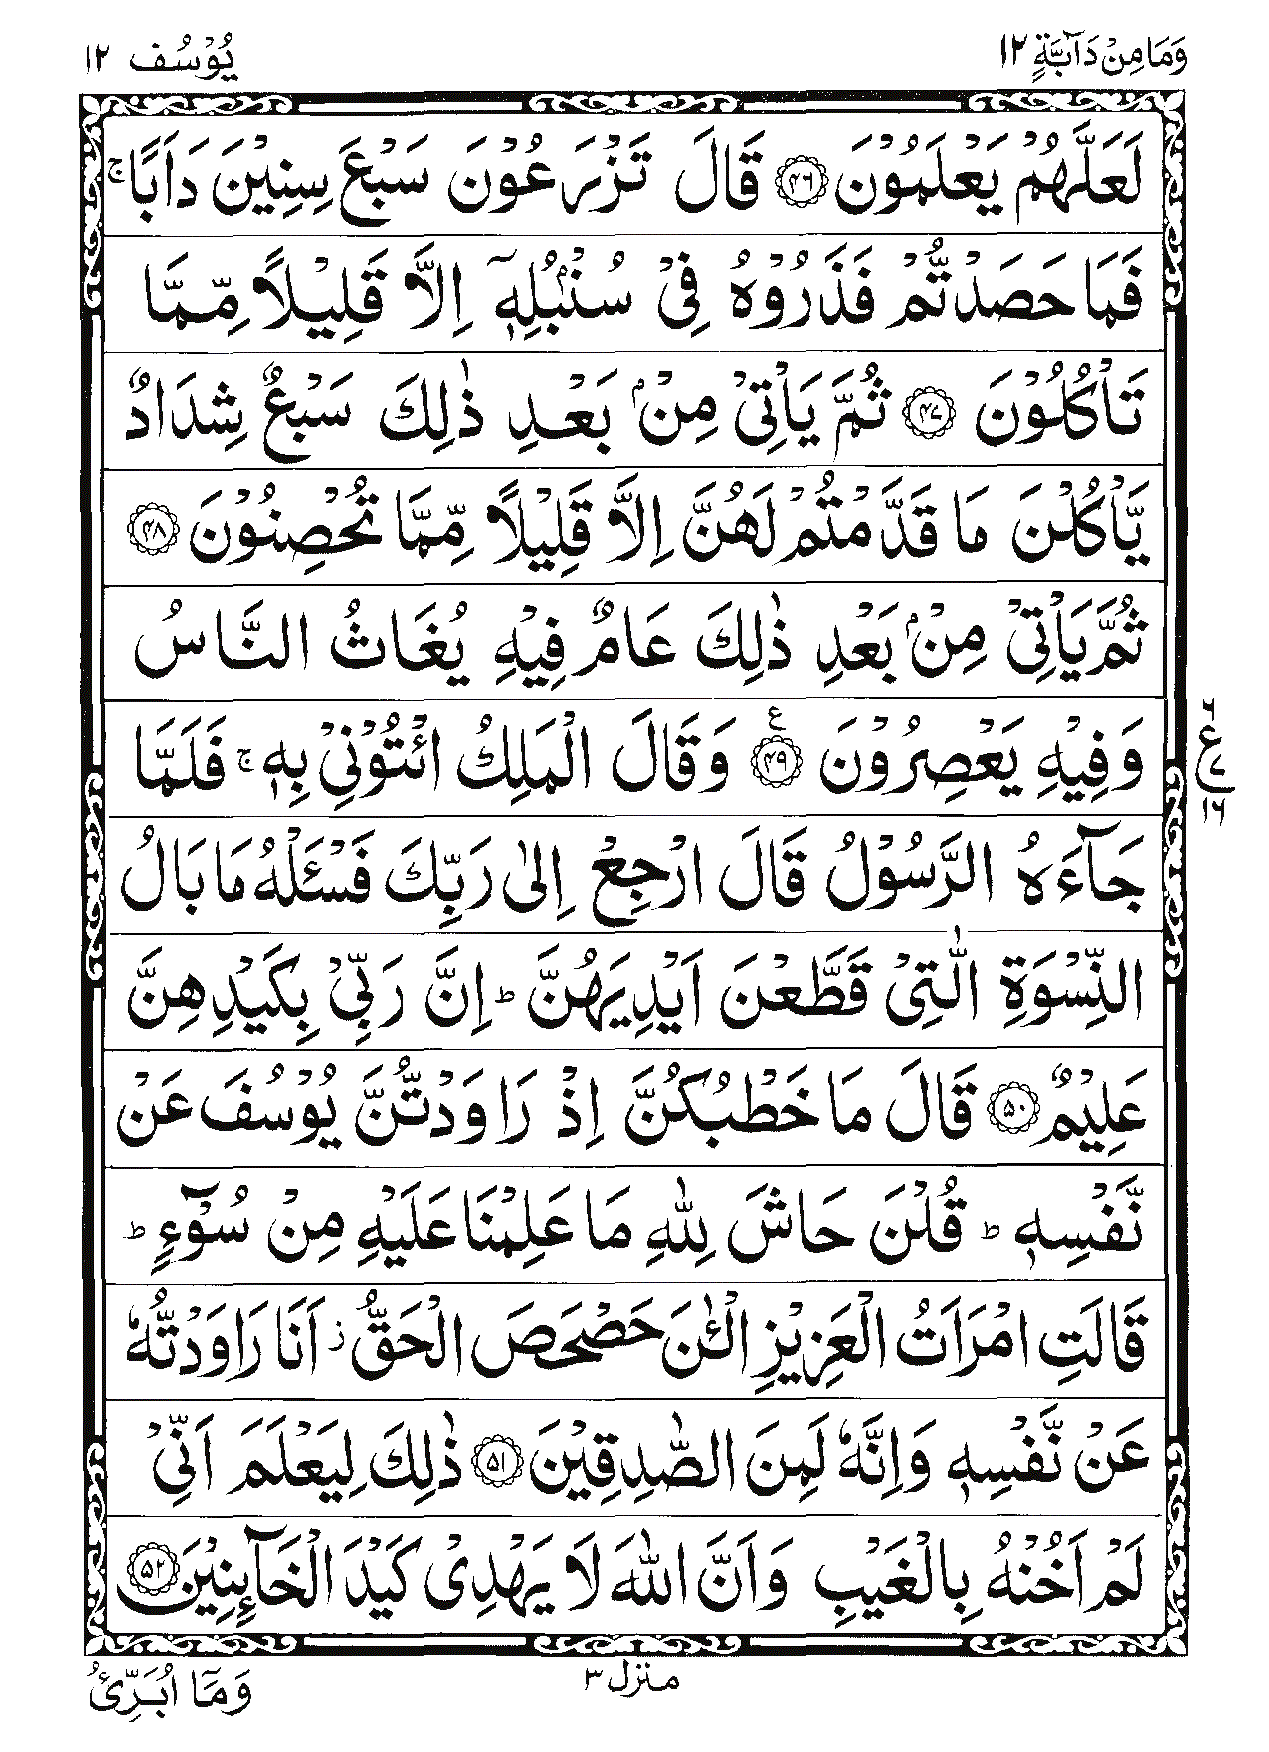 وَمَا مِنْ دَآبَّةٍ ١٢
يُوْسُف ١٢
لَعَلَّهُمْ يَعْلَمُوْنَ ﴿۴۶﴾ قَالَ تَزْرَعُوْنَ سَبْعَ سِنِيْنَ دَاَبًا ۚ
فَمَا حَصَدْتُّمْ فَذَرُوْهُ فِيْ سُنْۢبُلِهٖۤ اِلَّا قَلِيْلًا مِّمَّا
تَاْكُلُوْنَ ﴿۴۷﴾ ثُمَّ يَاْتِيْ مِنْۢ بَعْدِ ذٰلِكَ سَبْعٌ شِدَادٌ
يَّاْكُلْنَ مَا قَدَّمْتُمْ لَهُنَّ اِلَّا قَلِيْلًا مِّمَّا تُحْصِنُوْنَ ﴿۴۸﴾
ثُمَّ يَاْتِيْ مِنْۢ بَعْدِ ذٰلِكَ عَامٌ فِيْهِ يُغَاثُ النَّاسُ
وَفِيْهِ يَعْصِرُوْنَ ﴿۴۹﴾ ع وَقَالَ الْمَلِكُ ائْتُوْنِيْ بِهٖ ۚ فَلَمَّا
٢
ع
٧
١٦
جَآءَهُ الرَّسُوْلُ قَالَ ارْجِعْ اِلٰى رَبِّكَ فَسْـَٔلْهُ مَا بَالُ
النِّسْوَةِ الّٰتِيْ قَطَّعْنَ اَيْدِيَهُنَّ ؕ اِنَّ رَبِّيْ بِكَيْدِهِنَّ
عَلِيْمٌ ﴿۵۰﴾ قَالَ مَا خَطْبُكُنَّ اِذْ رَاوَدْتُّنَّ يُوْسُفَ عَنْ
نَّفْسِهٖ ؕ قُلْنَ حَاشَ لِلّٰهِ مَا عَلِمْنَا عَلَيْهِ مِنْ سُوْٓءٍ ؕ
قَالَتِ امْرَاَتُ الْعَزِيْزِ الْـٰٔنَ حَصْحَصَ الْحَقُّ ؗ اَنَا رَاوَدْتُّهٗ
عَنْ نَّفْسِهٖ وَاِنَّهٗ لَمِنَ الصّٰدِقِيْنَ ﴿۵۱﴾ ذٰلِكَ لِيَعْلَمَ اَنِّيْ
لَمْ اَخُنْهُ بِالْغَيْبِ وَاَنَّ اللّٰهَ لَا يَهْدِيْ كَيْدَ الْخَآئِنِيْنَ ﴿۵۲﴾
منزل ٣
وَمَآ اُبَرِّئُ